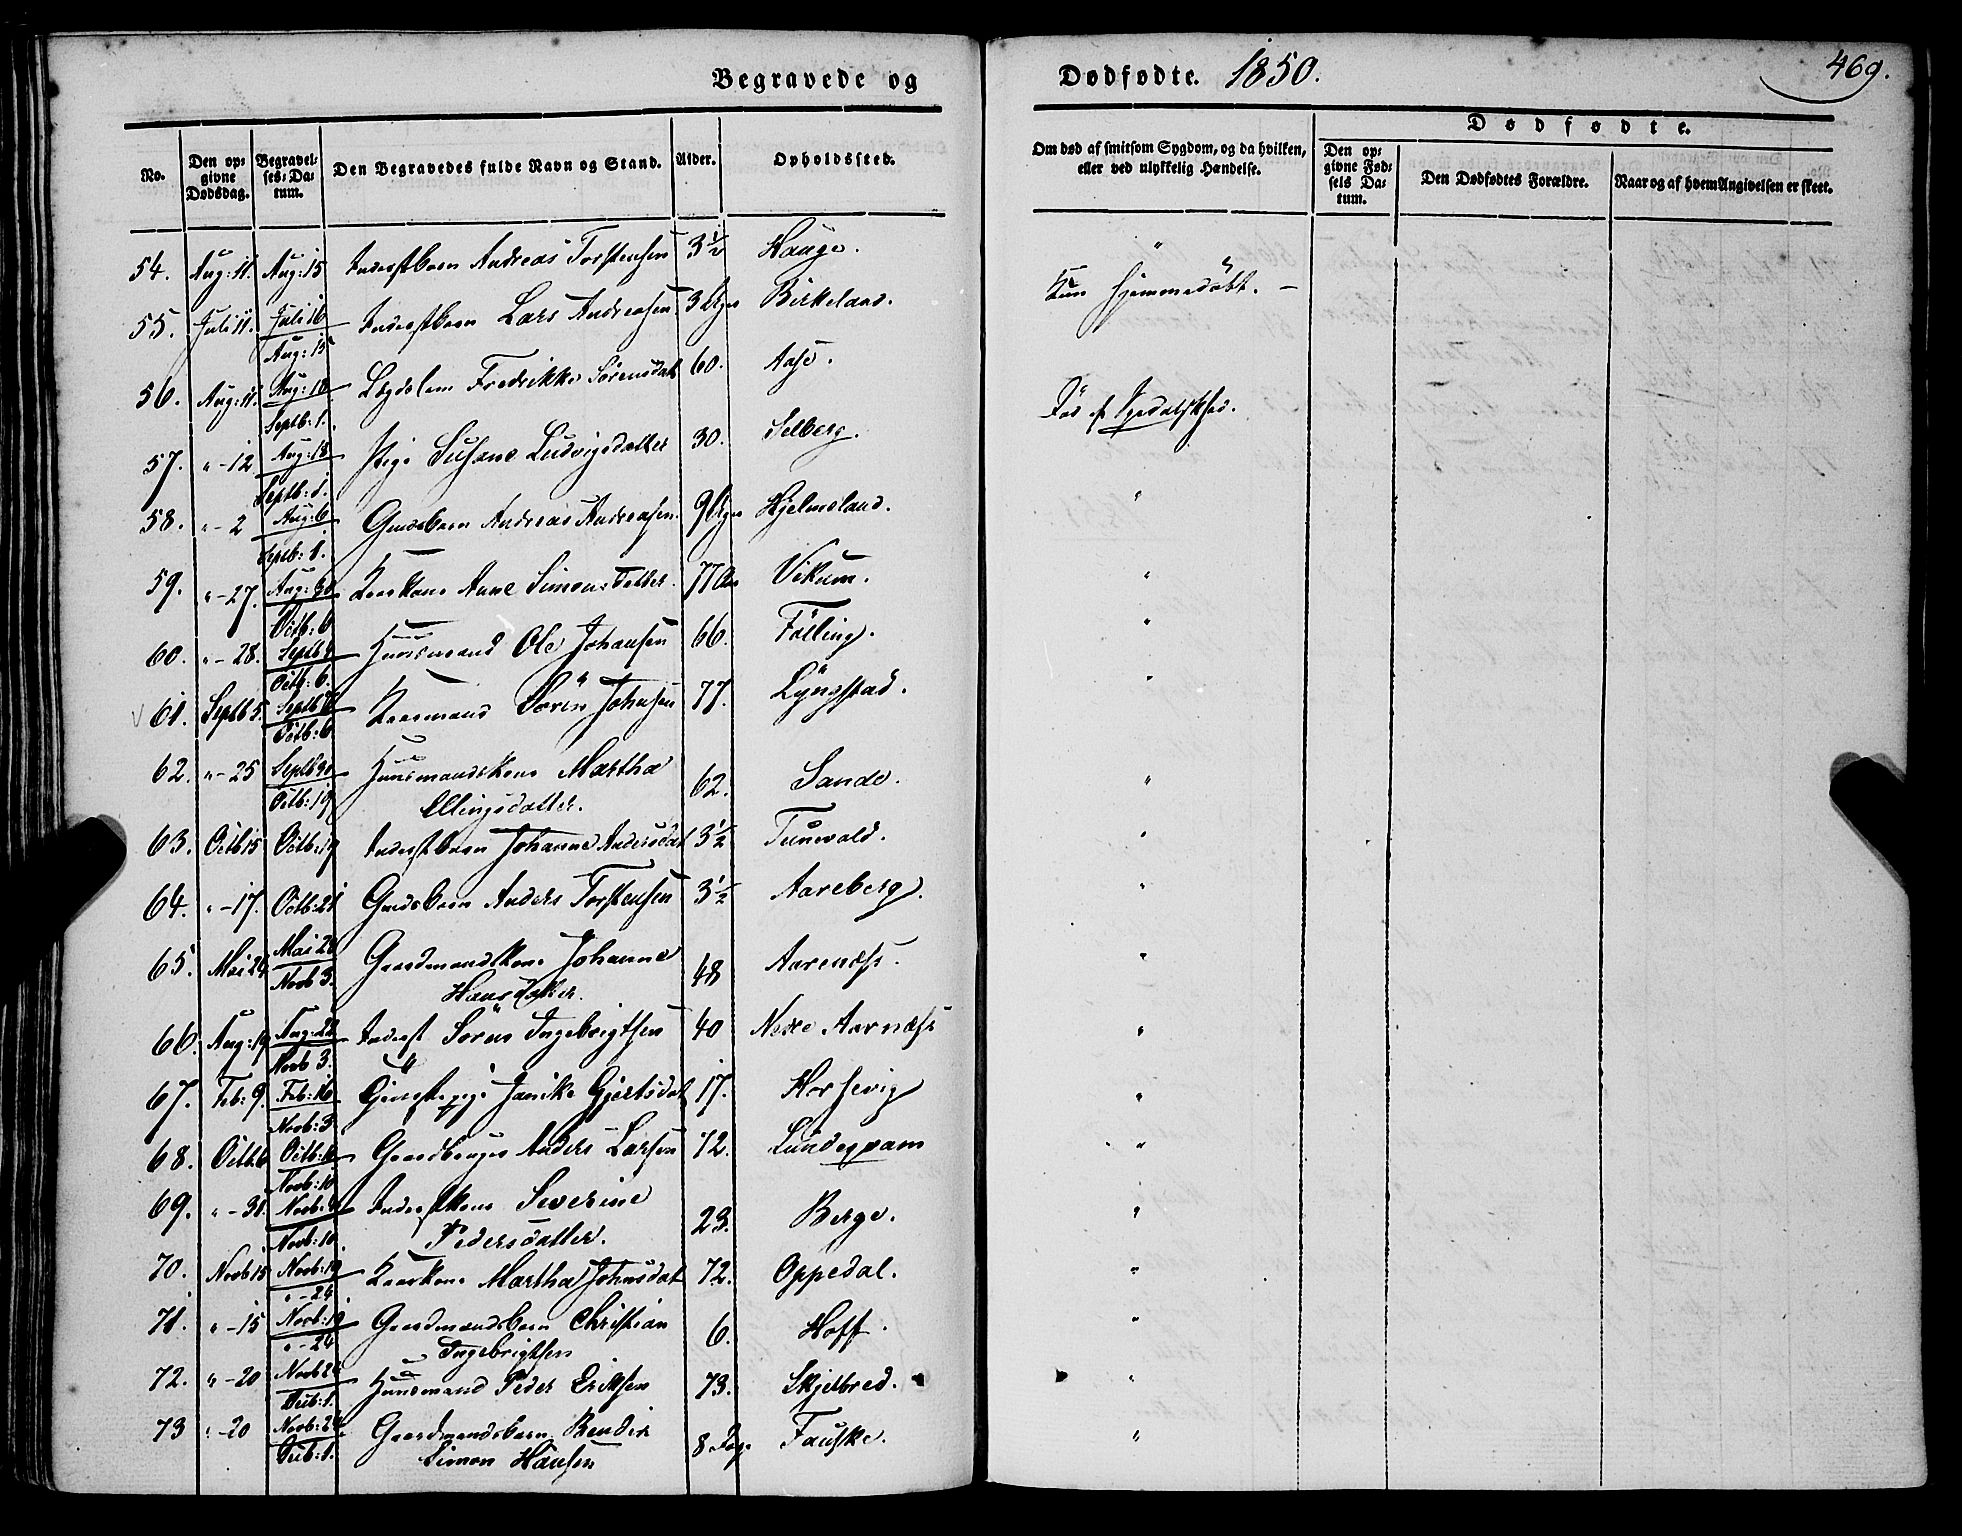 Begravede og
Dødfødte. 1850.
469.
No.
Den opgivne Dødsdag.
Begravelses-Datum.
Den Begravedes fulde Navn og Stand.
Alder.
Opholdssted.
Om død af smitsom Sygdom, og da hvilken, eller ved ulykkelig Hændelse.
Dødfødte.
Den opgivne Fødsels Datum.
Den Dødfødtes Forældre.
Naar og af hvem Angivelsen er skeet.
54. Aug: 11. Aug: 15 Inderstbarn Andreas Torstensen 3½ Hauge. "
55. Juli 11. Juli 16 Aug: 15 Inderstbarn Lars Andreasen 3 Birkeland. Kun hjemmedøbt. —
56. Aug: 11. Aug: 18 Septb: 1. Lægdslem Fredrikke Sörensdatt 60. Aase.
57. " - 12 Aug: 18 Septb: 1. Pige Susane Ludvigsdatter 30. Selberg. Död af
58. " - 2 Aug: 6 Septb: 1. Gmdsbarn Andreas Andreasen. 9 Hjelmeland. "
59. " - 27. Aug: 30 Octb: 6 Kaarkone Anne Simonsdatter. 77 Aar Vikum. "
60. " - 28. Septb Octb: 6. Huusmand Ole Johansen 66. Fölling. "
61. Septb 5. Septb Octb: 6 Kaarmand Sörin Johnsen 77. Lÿngstad. "
62. " - 25 Septb 30 Octb: 19 Huusmandskone Martha Ellingsdatter. 62. Sande. "
63. Octb 15 Octb: 19 Inderstbarn Johanne Andersdat 3½ Tunvald. "
64. " - 17. Octb: 21 Gmdsbarn Anders Torstensen 3½ Aareberg. "
65. Mai 24 Mai 28 Novb 3. Gaardmandskone Johanne Hansdatter. 48 Aarnæss. "
66. Aug: 19 Aug: 22 Novb 3. Inderst Sören Ingebrigtsen 40 Nere Aarnæss "
67. Feb: 9. Feb: 16 Novb: 3 Janike Gjertsdat 17. Horsevig "
68. Octb: 6 Octb: Novb: 10 Gaardbruger Anders Larsen 72. Lundeqvam "
69. " - 31. Novb: Novb: 10. Inderstkone Severine Pedersdatter. 23. Berge. "
70. Novb 15 Novb: 19 " - 24 Kaarkone Martha Johnsdat 72. Oppedal. "
71. " - 15 Novb: 19 " - 24 Gaardmandsbarn Christian Ingebrigtsen 6. Hoff. "
72. " - 20 Novb 26 Dcb: 1. Huusmand Peder Eriksen 73. Skjelbred. "
73 " - 20 Novb: 24. Dcb: 1. Gaardmandsbarn Bendix Simon Hansen 8 Dage Fauske. "